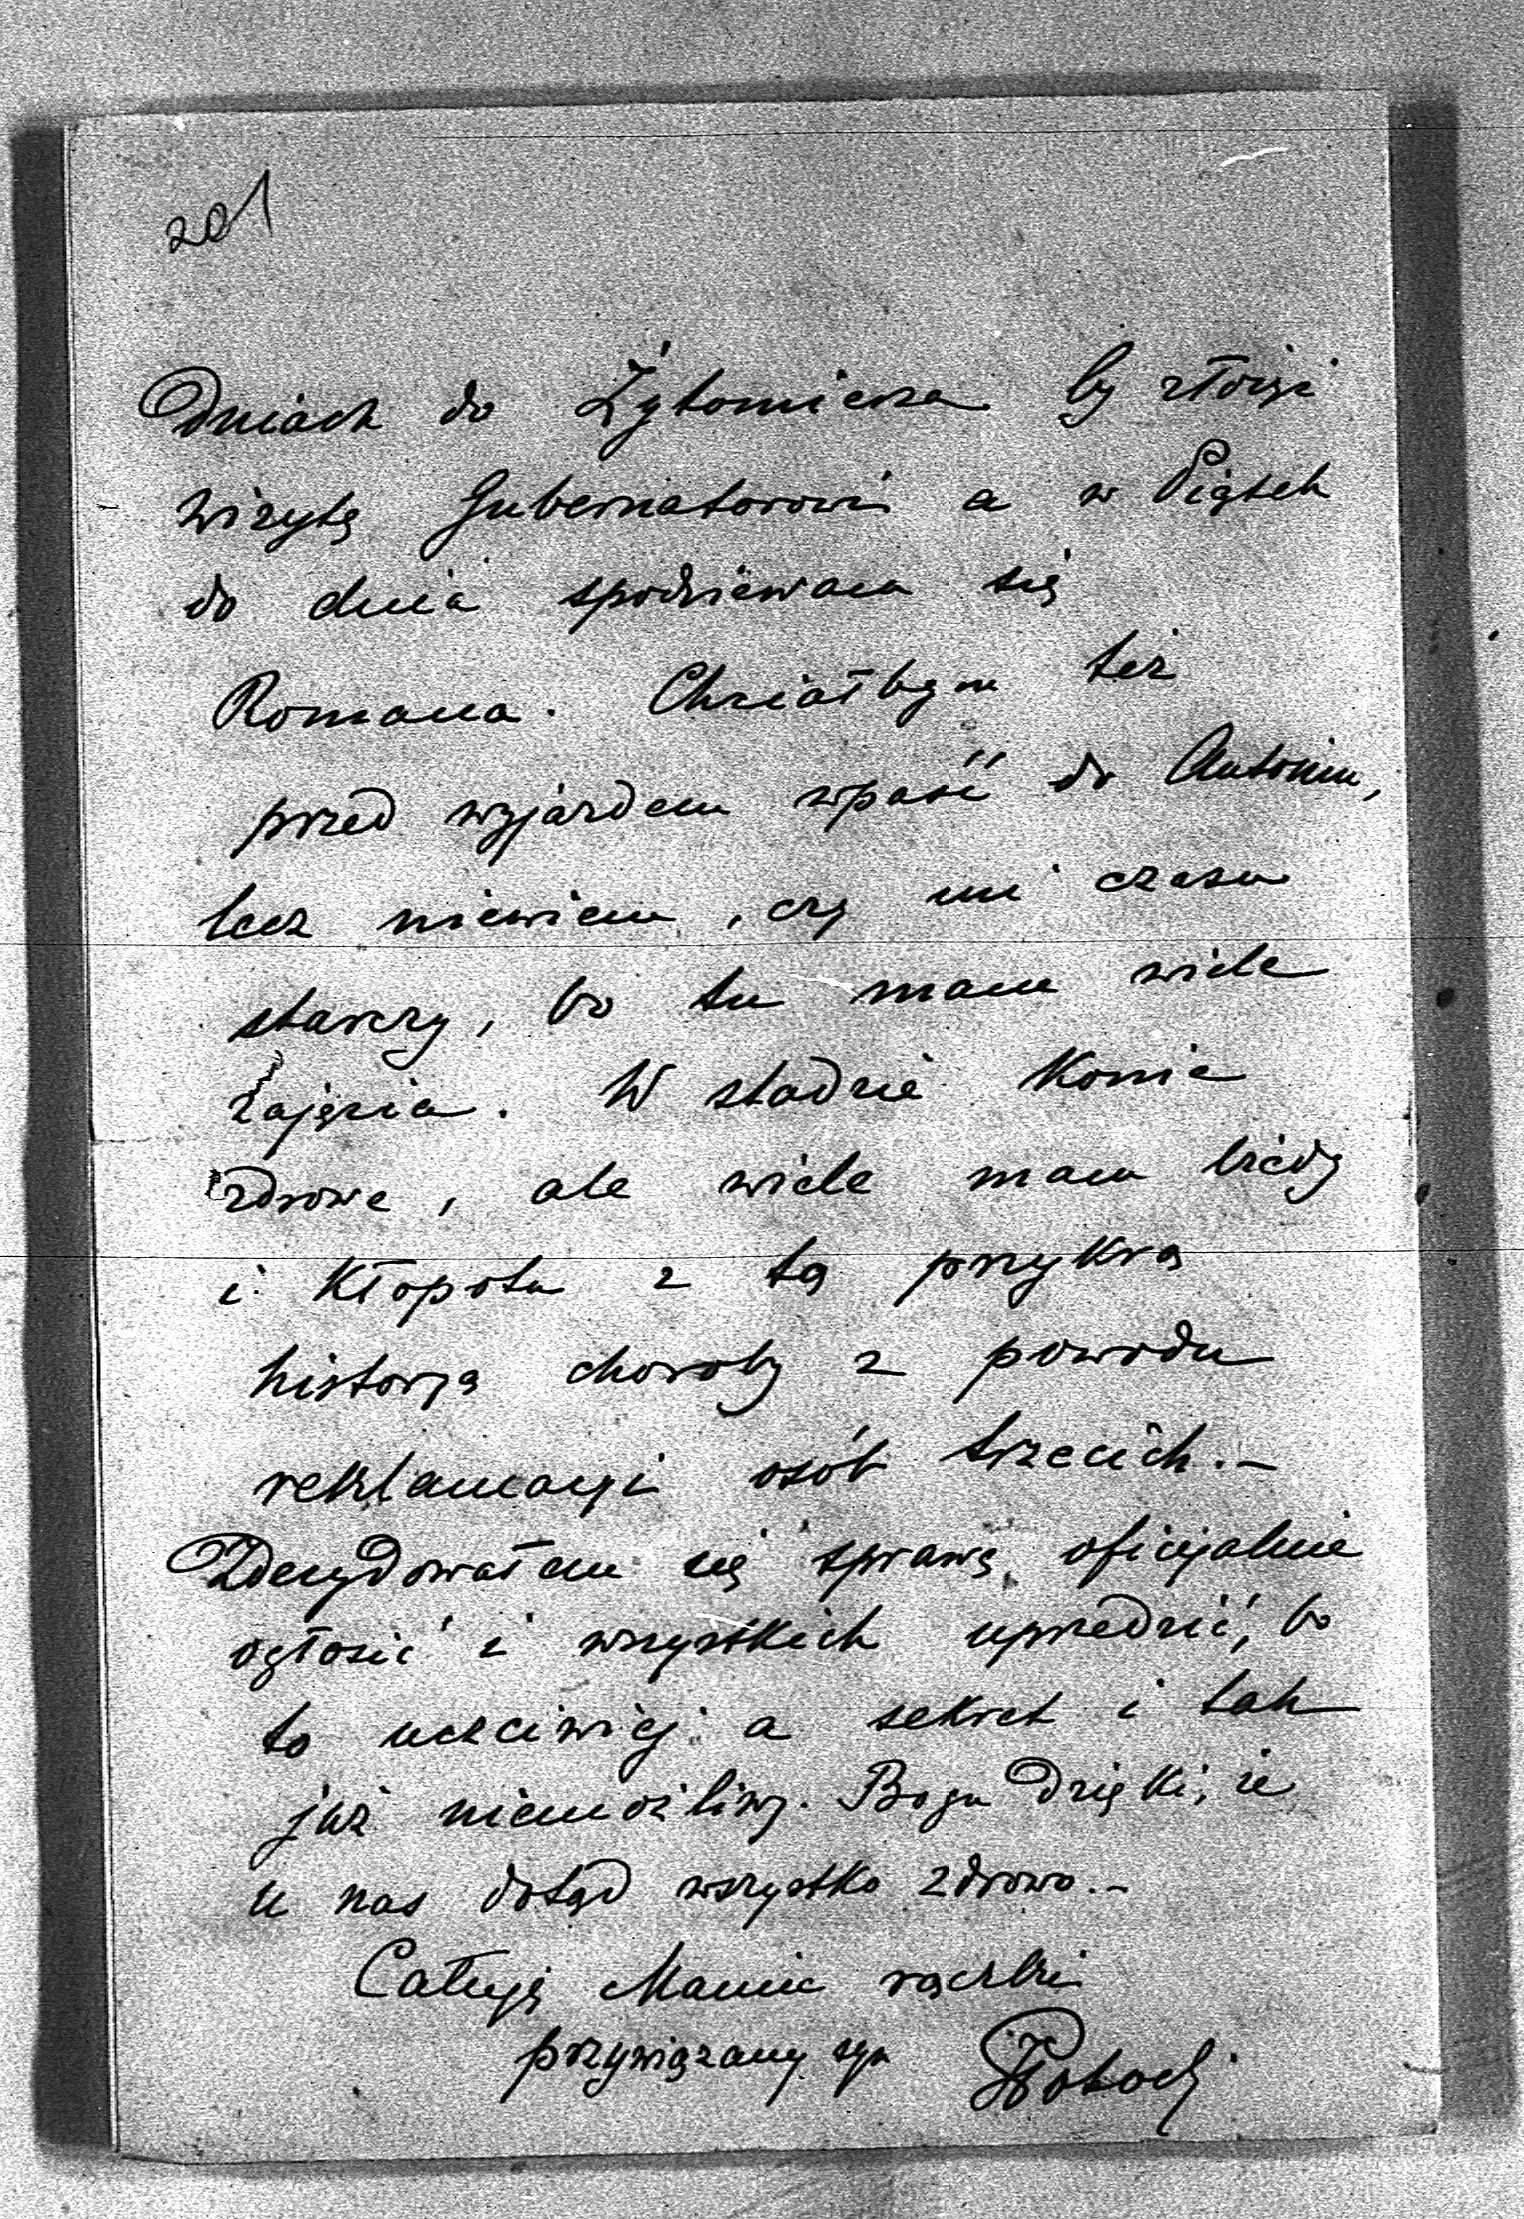 201
Dniach do Żytomierza by złożyć
wizytę Gubernatorowi a w Piątek
do dnia spodziewam się
Romana. Chciałbym też
przed wyjazdem wpaść do Antonin,
lecz niewiem, czy mi czasu
starczy, bo tu mam wiele
zajęcia. W stadzie Konie
zdrowe, ale wiele mam biedy
i Kłopotu z tą przykrą
historją choroby z powodu
reklamacyi osób trzecich.-
Zdecydowałem się sprawę oficjalnie
ogłosić i wszystkich uprzedzić, bo
to uczciwiej a sekret i tak
już niemożliwy. Bogu Dzięki, że
u nas dotąd wszystko zdrowo.-
Całuję Mamie rączki
przywiązany syn JPotocki